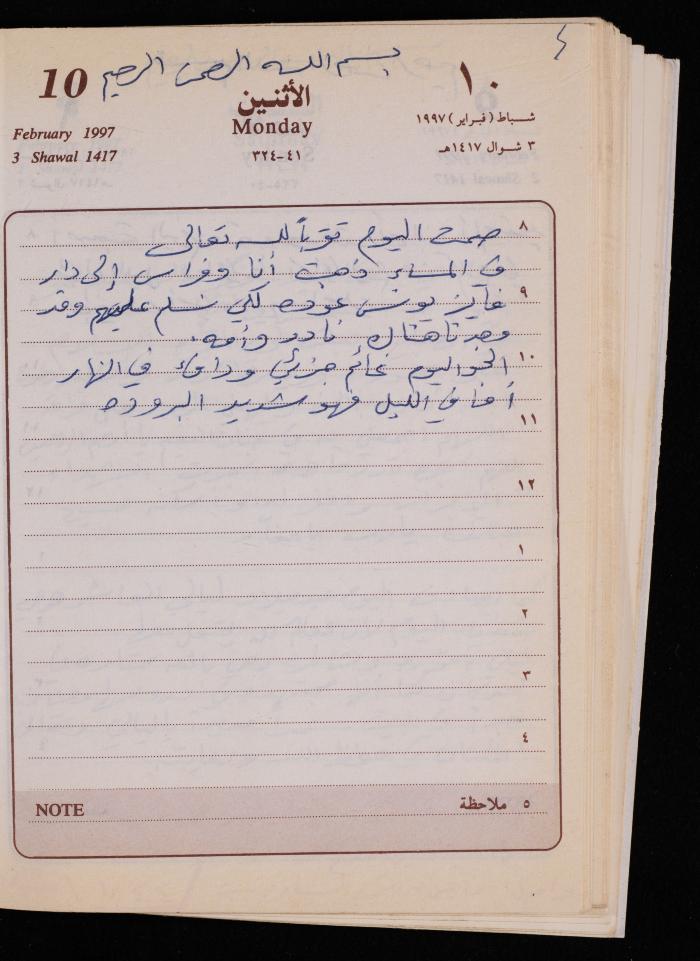 بسم الله الرحمن الرحيم
10
الأثنين
١٠
February 1997
Monday
شباط (فبراير) ١٩٩٧
3 Shawal 1417
٣٢٤-٤١
٣ شوال ١٤١٧هـ
٨ صمت اليوم تقرباً لله تعالى
في المساء ذهبت أنا وفراس إلى دار
٩ فايز يونس عوده لكي نسلم عليهم وقد
وجدنا هناك نادر وأمه.
١٠ الجو اليوم غائم جزئي ودافئ في النهار
أما في الليل فهو شديد البروده
١١
١٢
١
٢
٣
٤
NOTE
٥ ملاحظة